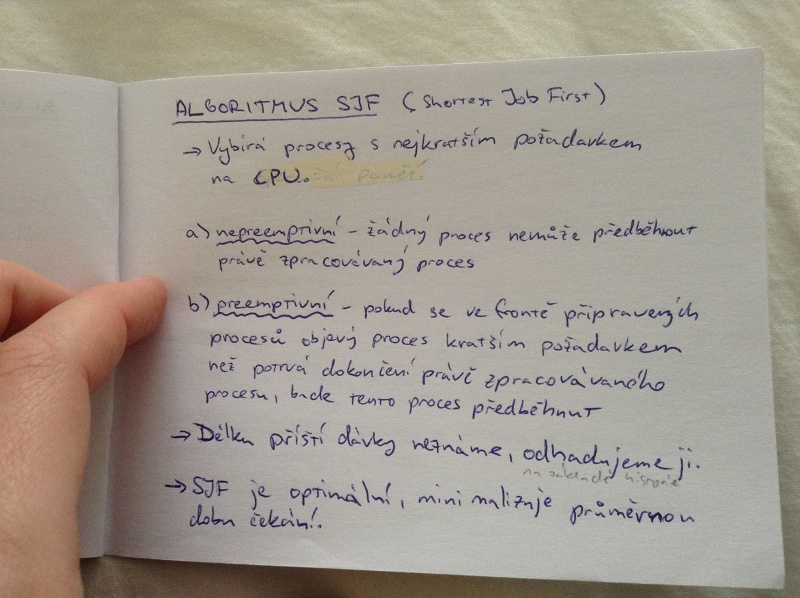 ALGORITMUS SJF (Shortest Job First)
→ Vybírá procesy s nejkratším požadavkem
na CPU.
a) nepreemptivní – žádný proces nemůže předběhnout
právě zpracovávaný proces
b) preemptivní – pokud se ve frontě připravených
procesů objevý proces kratším požadavkem
než potrvá dokončení právě zpracovávaného
procesu, bude tento proces předběhnut
→ Délku příští dávky neznáme, odhadujeme ji.
na základě historie
→ SJF je optimální, minimalizuje průměrnou
dobu čekání.